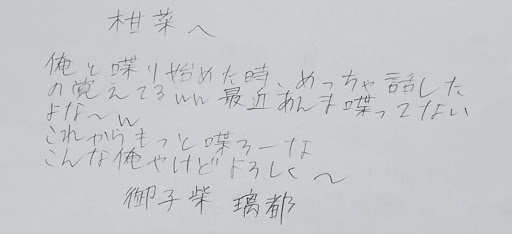 柑菜へ
俺と喋り始めた時、めっちゃ話した
の覚えてるww 最近あんま喋ってない
よな〜w
これからもっと喋ろーな
こんな俺やけどよろしく〜
御子柴 璃都